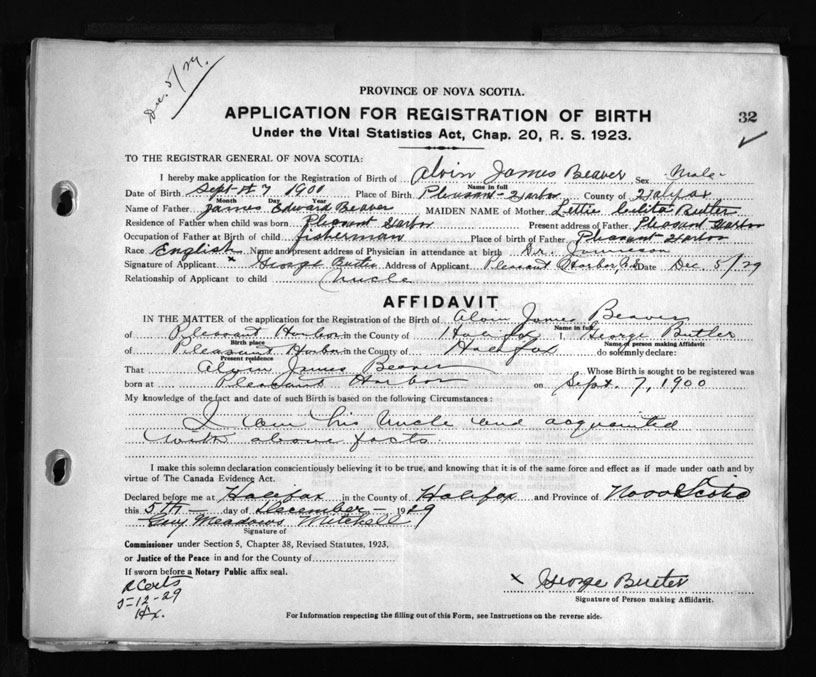 Dec. 5/29.
PROVINCE OF NOVA SCOTIA.
APPLICATION FOR REGISTRATION OF BIRTH
32
Under the Vital Statistics Act, Chap. 20, R. S. 1923.
TO THE REGISTRAR GENERAL OF NOVA SCOTIA:
I hereby make application for the Registration of Birth of Alvin James Beaver Sex Male
Name in full
Date of Birth Sept 7 1900 Place of Birth Pleasant Harbor County of Halifax
Month Day Year
Name of Father James Edward Beaver MAIDEN NAME of Mother Lettie Butler
Residence of Father when child was born Pleasant Harbor Present address of Father Pleasant Harbor
Occupation of Father at Birth of child fisherman Place of birth of Father Pleasant Harbor
Race English Name and present address of Physician in attendance at birth Dr. Jamieson
Signature of Applicant x George Butler Address of Applicant Pleasant Harbor N.S. Date Dec 5/29
Relationship of Applicant to child Uncle
AFFIDAVIT
IN THE MATTER of the application for the Registration of the Birth of Alvin James Beaver
Name in full
of Pleasant Harbor in the County of Halifax I, George Butler
Birth place Name of person making Affidavit
of Pleasant Harbor in the County of Halifax do solemnly declare:
Present residence
That Alvin James Beaver Whose Birth is sought to be registered was
born at Pleasant Harbor on Sept. 7, 1900
My knowledge of the fact and date of such Birth is based on the following Circumstances:
I am his Uncle and acquainted
with above facts.
I make this solemn declaration conscientiously believing it to be true, and knowing that it is of the same force and effect as if made under oath and by
virtue of The Canada Evidence Act.
Declared before me at Halifax in the County of Halifax and Province of Nova Scotia
this 5th day of December 1929
Guy Meadows Mitchell
Signature of
Commissioner under Section 5, Chapter 38, Revised Statutes, 1923,
or Justice of the Peace in and for the County of
If sworn before a Notary Public affix seal.
x George Butler
Signature of Person making Affidavit.
5-12-29
Hx.
For Information respecting the filling out of this Form, see Instructions on the reverse side.